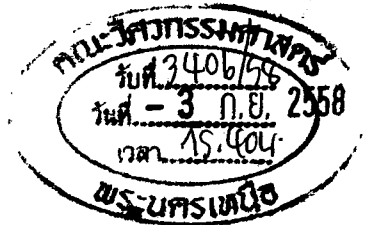 คณะวิศวกรรมศาสตร์
รับที่ 3406/58
วันที่ - 3 ก.ย. 2558
เวลา 15.40น.
พระนครเหนือ